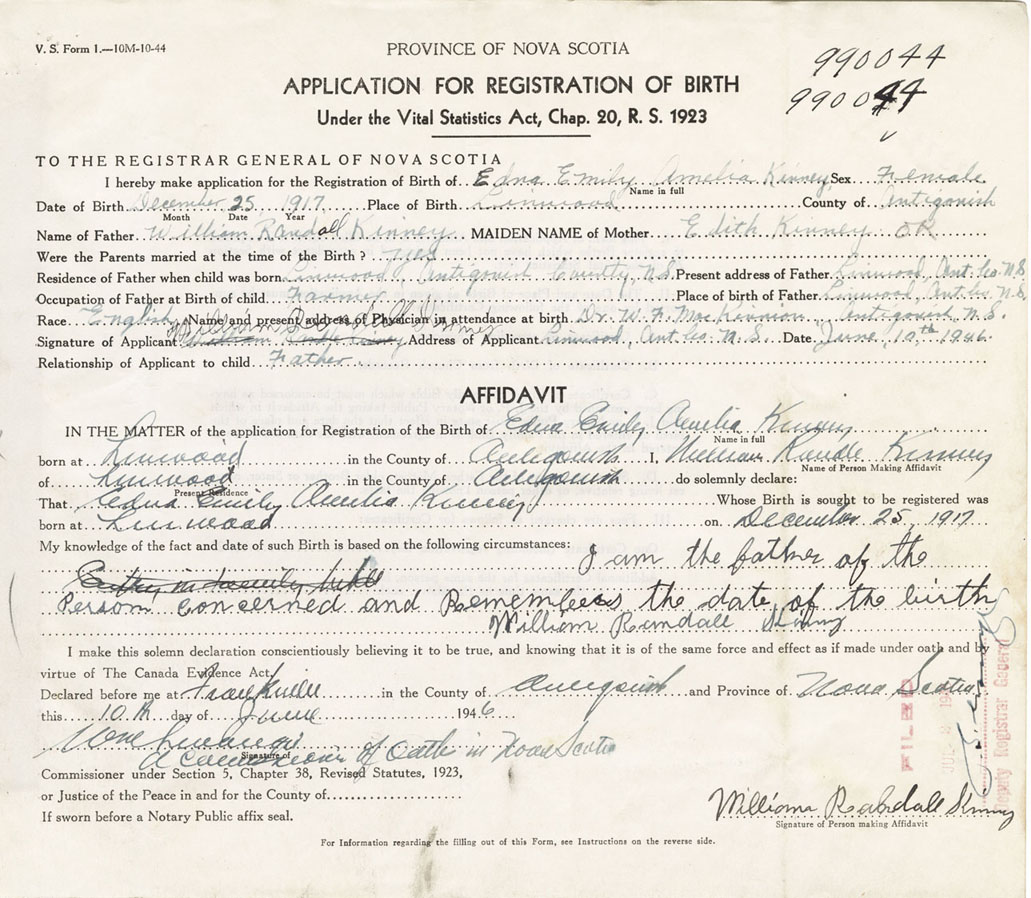 V. S. Form 1.—10M-10-44
PROVINCE OF NOVA SCOTIA
990044
APPLICATION FOR REGISTRATION OF BIRTH
990044
Under the Vital Statistics Act, Chap. 20, R. S. 1923
TO THE REGISTRAR GENERAL OF NOVA SCOTIA
I hereby make application for the Registration of Birth of Edna Emily Amelia Kinney Sex Female
Name in full
Date of Birth December 25 1917 Place of Birth Linwood County of Antigonish
Month Date Year
Name of Father William Randall Kinney MAIDEN NAME of Mother Edith Kinney OK
Were the Parents married at the time of the Birth? yes
Residence of Father when child was born Linwood, Antigonish County, N.S. Present address of Father Linwood, Ant. Co. N.S
Occupation of Father at Birth of child Farmer Place of birth of Father Linwood, Ant. Co. N.S.
Race English Name and present address of Physician in attendance at birth Dr. W. F. MacKinnon Antigonish N.S.
Signature of Applicant William Address of Applicant Linwood, Ant. Co. N.S. Date June 10th 1946.
Relationship of Applicant to child Father
AFFIDAVIT
IN THE MATTER of the application for Registration of the Birth of Edna Emily Amelia Kinney
Name in full
born at Linwood in the County of Antigonish I, William Randle Kinney
Name of Person Making Affidavit
of Linwood in the County of Antigonish do solemnly declare:
Present Residence
That Edna Emily Amelia Kinney Whose Birth is sought to be registered was
born at Linwood on December 25, 1917
My knowledge of the fact and date of such Birth is based on the following circumstances: I am the father of the
Entry in family bible
Person concerned and Remembers the date of the birth
William Randall Kinny
I make this solemn declaration conscientiously believing it to be true, and knowing that it is of the same force and effect as if made under oath and by
virtue of The Canada Evidence Act.
Declared before me at Frankville in the County of Antigonish and Province of Nova Scotia
this 10th day of June 1946
A Commissioner of Oaths in Nova Scotia
Signature of
Commissioner under Section 5, Chapter 38, Revised Statutes, 1923,
or Justice of the Peace in and for the County of
If sworn before a Notary Public affix seal.
Signature of Person making Affidavit
For Information regarding the filling out of this Form, see Instructions on the reverse side.
FILED
Deputy Registrar General